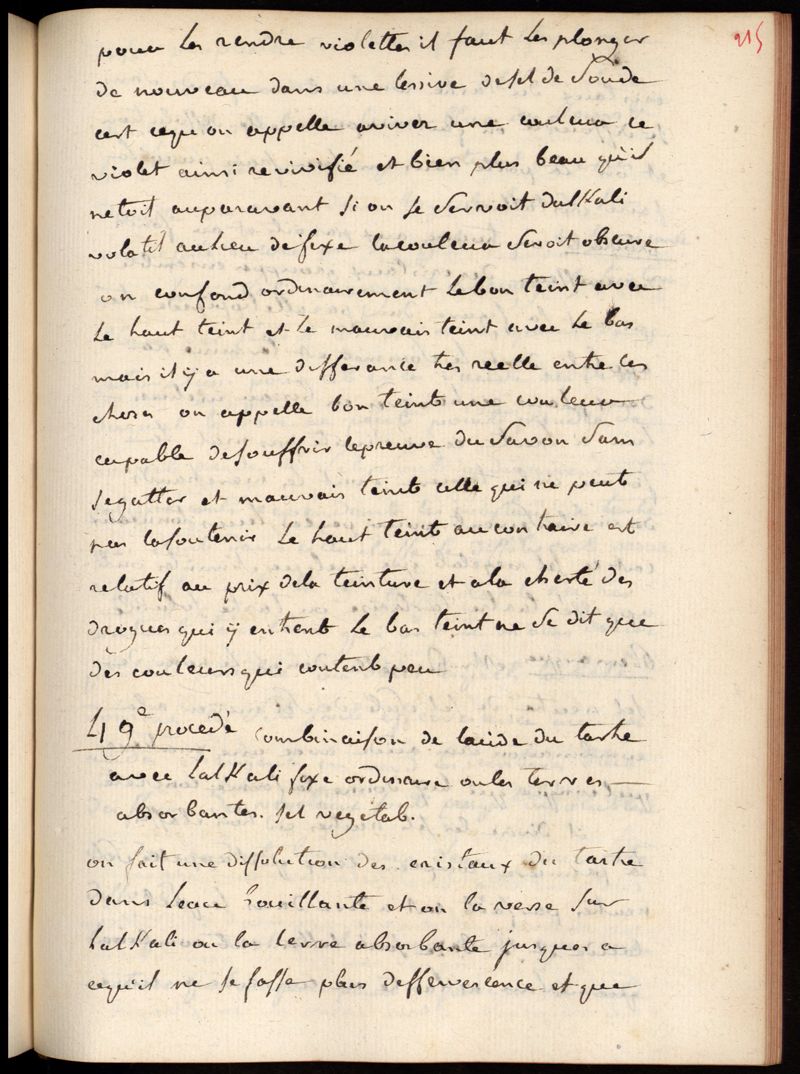 215
pour les rendre violettes il faut les plonger
de nouveau dans une lessive de sel de Soude
cest cequ on appelle aviver une couleur ce
violet ainsi revivifié et bien plus beau quil
netoit auparavant Si on se Servoit dalKali
volatil aulieu defixe lacouleur Seroit obscure
on confond ordinairement le bon teint avec
le haut teint et le mauvais teint avec le bas
mais il y a une differance tres reelle entre ces
choses on appelle bon teint une couleur
capable desouffrir lepreuve du Savon Sans
segatter et mauvais teint celle qui ne peut
pas lasoutenir le haut teint au contraire est
relatif au prix dela teinture et ala cherté des
drogues qui ÿ entrent le bas teint ne Se dit que
des couleurs qui coutent peu
49e procedé combinaison de lacide du tartre
avec lalKali fixe ordinaire ou les terres
absorbantes. sel vegetab.
on fait une dissolution des cristaux du tartre
dans leau bouillante et on la verse Sur
lalKali ou la terre absorbante jusques a
cequil ne se fasse plus deffervescence et que